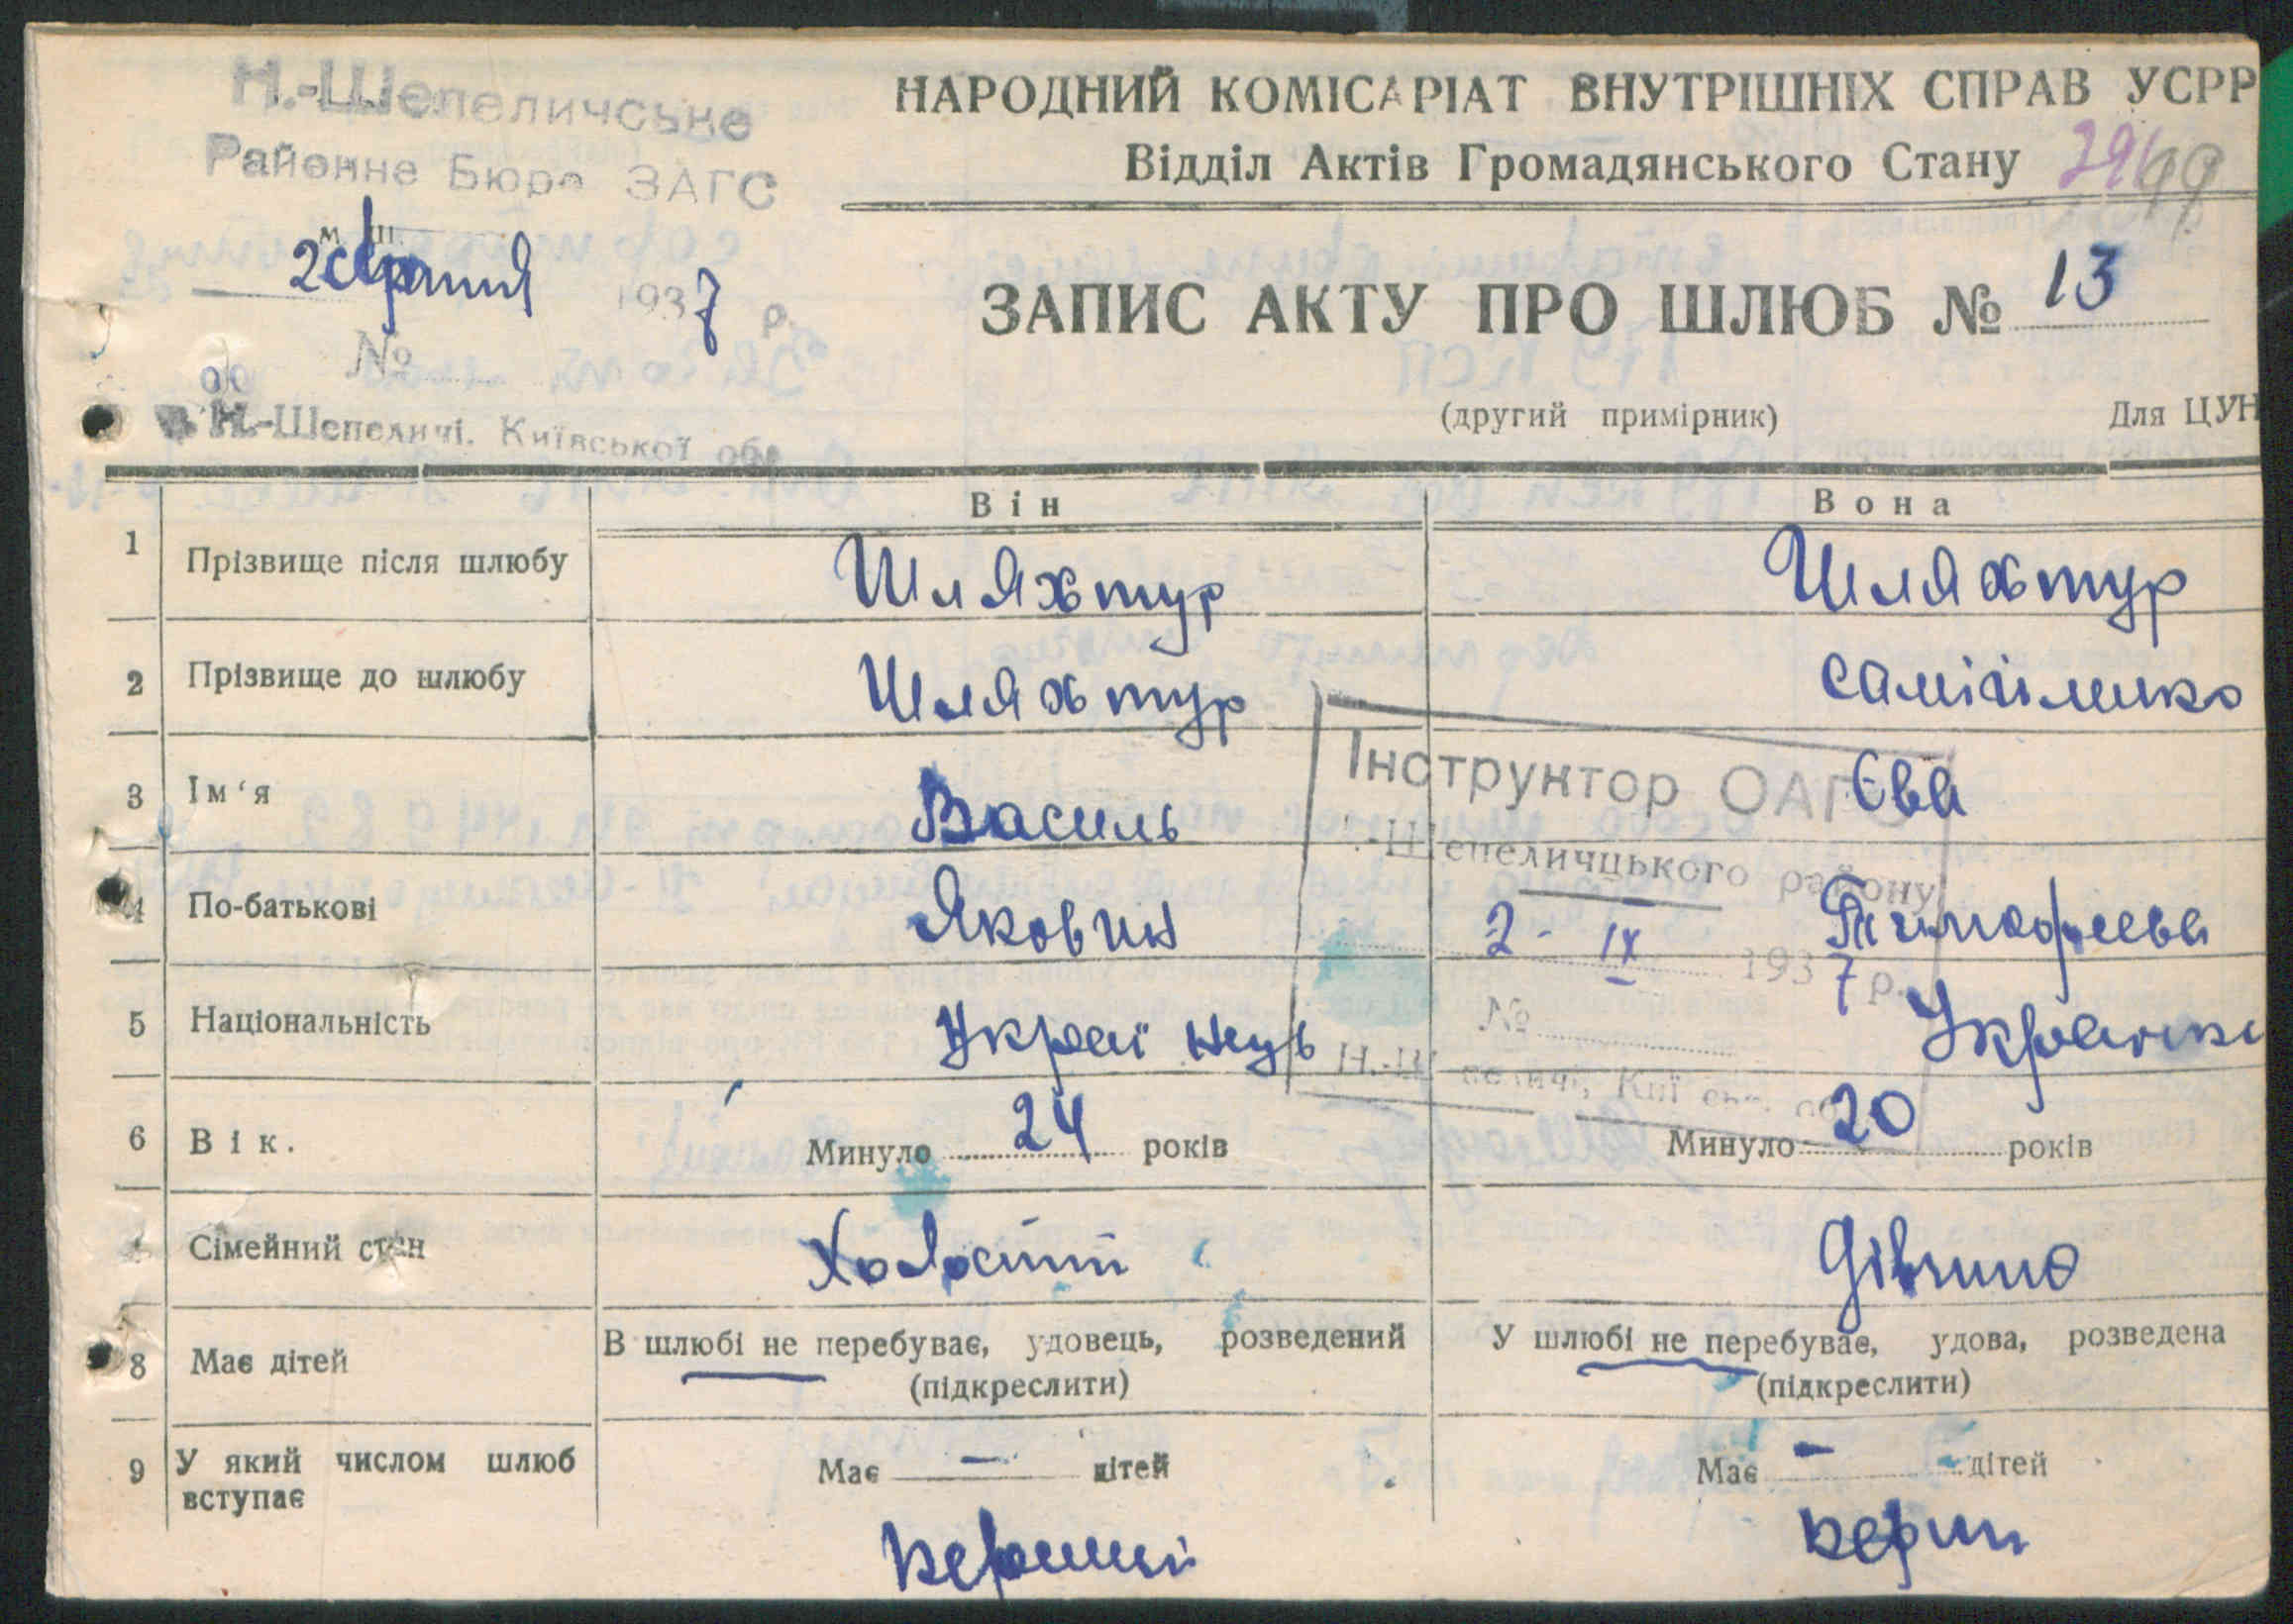 Н.-Шепеличське
Районне Бюро ЗАГС
2 серпня 1937 р.
№
Н.-Шепеличі, Київської обл
НАРОДНИЙ КОМІСАРІАТ ВНУТРІШНІХ СПРАВ УСРР
Відділ Актів Громадянського Стану
ЗАПИС АКТУ ПРО ШЛЮБ № 13
(другий примірник) Для ЦУН
Він Вона
1 Прізвище після шлюбу Шляхтур Шляхтур
2 Прізвище до шлюбу Шляхтур
Інструктор ОАГС
3 Ім‘я Василь Єва
.-Шепеличцького району
4 По-батькові Якович Тимофеева
2 - IX 1937 р.
5 Національність Українець Українка
№
Н.-Шепеличі, Київськ. об
6 Вік. Минуло 24 років Минуло 20 років
7 Сімейний стан Холостий Дівчина
8 Має дітей В шлюбі не перебуває, удовець, розведений У шлюбі не перебуває, удова, розведена
(підкреслити) (підкреслити)
9 У який числом шлюб вступає Має — дітей Має — дітей
перший перш